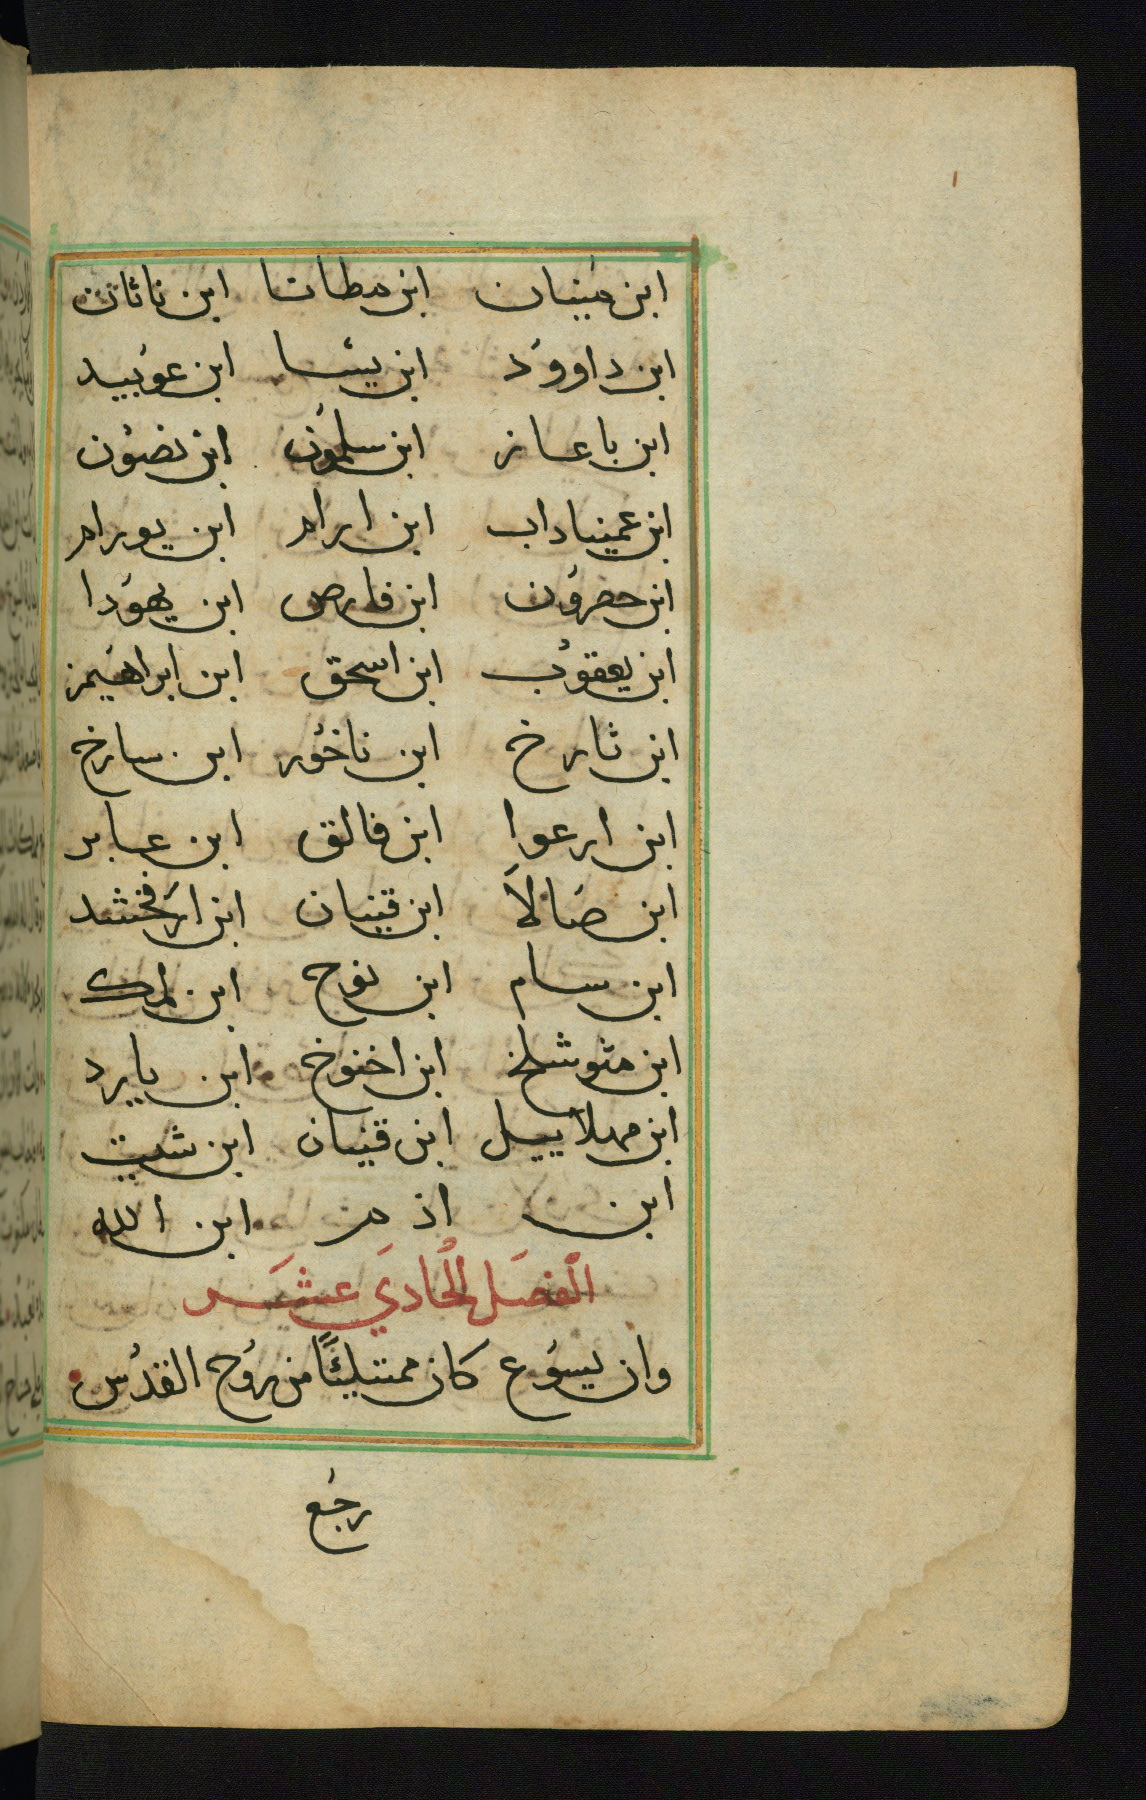 ابن مينان ابن مطاتا ابن ناثان
ابن داوود ابن يشا ابن عوبيد
ابن باعاز ابن سلمون ابن نصون
ابن عميناداب ابن ارام ابن يورام
ابن حصرون ابن فارص ابن يهودا
ابن يعقوب ابن اسحق ابن ابراهيم
ابن ثارخ ابن ناخور ابن سارخ
ابن ارعوا ابن فالق ابن عابر
ابن صالا ابن قينان ابن ارفخشد
ابن سام ابن نوح ابن لمك
ابن متوشلخ ابن اخنوخ ابن يارد
ابن مهلاييل ابن قينان ابن شيت
ابن ادم ابن الله
الفصل الحادي عشر
وان يسوع كان ممتليئاً من روح القدس
رجع